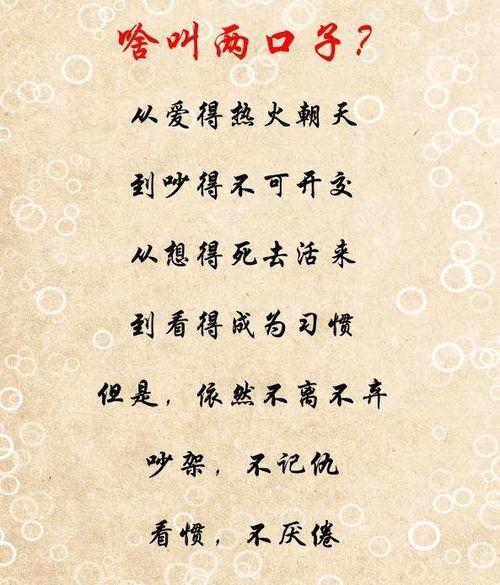 啥叫两口子?
从爱得热火朝天
到吵得不可开交
从想得死去活来
到看得成为习惯
但是，依然不离不弃
吵架，不记仇
看惯，不厌倦